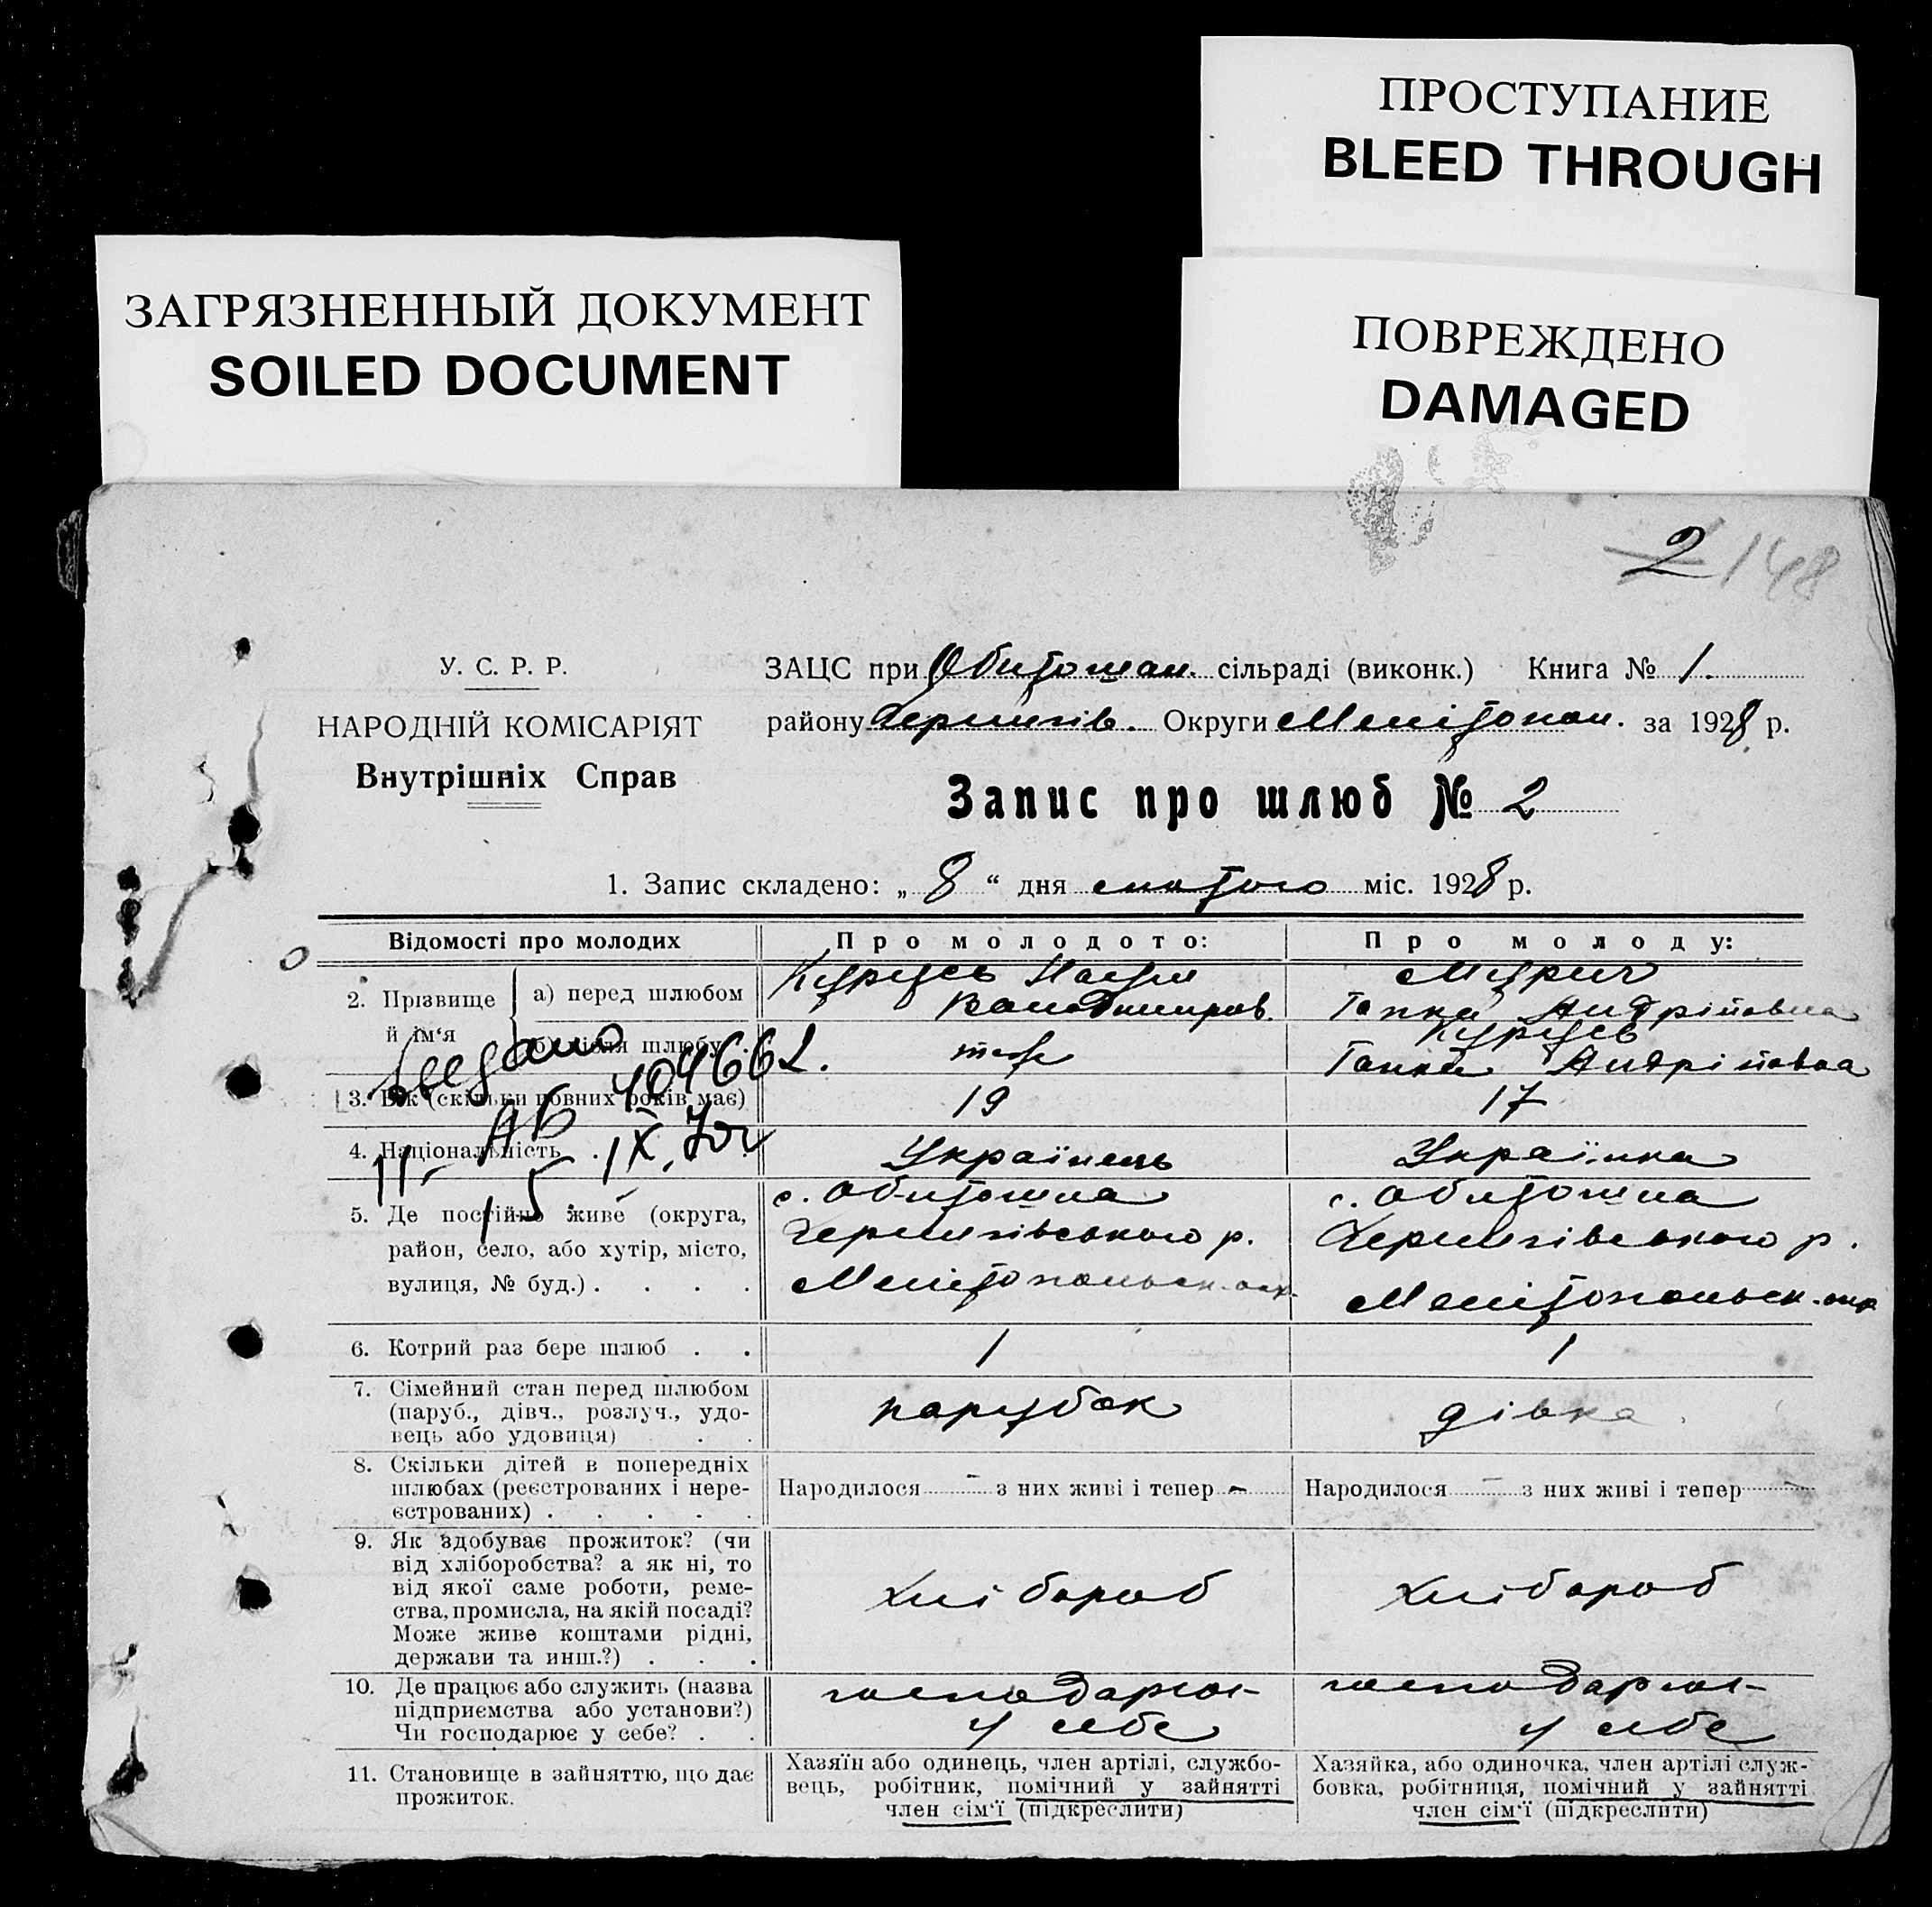 ПРОСТУПАНИЕ
BLEED THROUGH
ЗАГРЯЗНЕННЫЙ ДОКУМЕНТ
SOILED DOCUMENT
ПОВРЕЖДЕНО
DAMAGED
2 148
У. С. Р. Р.
НАРОДНІЙ КОМІСАРІЯТ
Внутрішніх Справ
ЗАЦС при Обиточан. сільраді (виконк.) Книга № 1.
району Чернигів. Округи Мелітопол. за 1928 р.
Запис про шлюб № 2
1. Запис складено: „ 8 “ дня лютого міс. 1928 р.
Відомості про молодих
Про молодого:
Про молоду:
2. Прізвище й ім'я
а) перед шлюбом
Володимиров.
Андріївна
б) після шлюбу
теж
Андріївна
404662.
3. Вік (скільки повних років має)
19
17
4. Національність
Українець
Українка
5. Де постійно живе (округа,
район, село, або хутір, місто,
вулиця, № буд.) . . . .
с. Обиточна
Чернигівського р.
Мелітопольск. окр.
с. Обиточна
Чернигівського р.
Мелітопольск. окр
6. Котрий раз бере шлюб . .
1
1
7. Сімейний стан перед шлюбом
(паруб., дівч., розлуч., удо-
вець або удовиця) . .
парубок
дівка
8. Скільки дітей в попередніх
шлюбах (реєстрованих і нере-
єстрованих) . . . . .
Народилося — з них живі і тепер —
Народилося — з них живі і тепер —
9. Як здобуває прожиток? (чи
від хліборобства? а як ні, то
від якої саме роботи, реме-
ства, промисла, на якій посаді?
Може живе коштами рідні,
держави та инш.?) . . .
хлібороб
хлібороб
10. Де працює або служить (назва
підприємства або установи?)
Чи господарює у себе? . .
господарює
у себе
господарює
у себе
11. Становище в зайняттю, що дає
прожиток.
Хазяїн або одинець, член артілі, службо-
вець, робітник, помічний у зайнятті
член сім'ї (підкреслити)
Хазяйка, або одиночка, член артілі служ-
бовка, робітниця, помічний у зайнятті
член сім'ї (підкреслити)